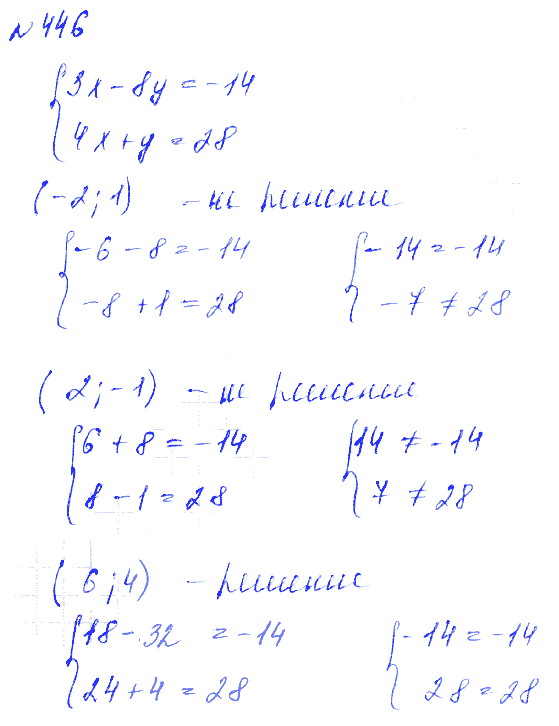 № 446
{3x - 8y = -14
{4x + y = 28
(-2; 1) - не решение
{-6 - 8 = -14 {-14 = -14
{-8 + 1 = 28 {-7 ≠ 28
(2; -1) - не решение
{6 + 8 = -14 {14 ≠ -14
{8 - 1 = 28 {7 ≠ 28
(6; 4) - решение
{18 - 32 = -14 {-14 = -14
{24 + 4 = 28 {28 = 28